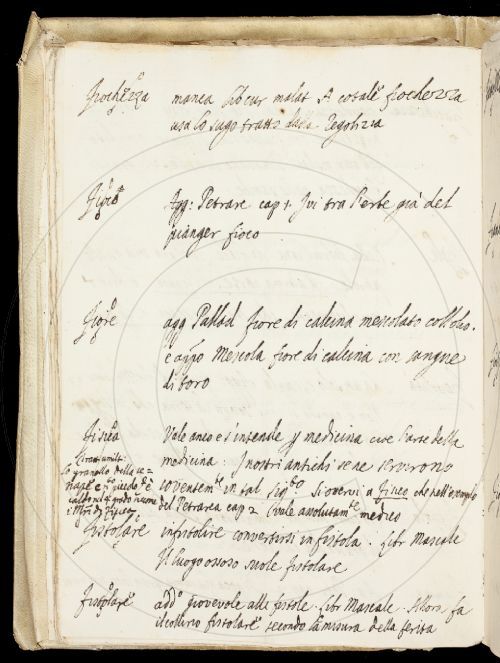 Fiochezza manca Lib cur malat. A cotale fiochezza
usa lo sugo tratto dalla regolizia
Fioco Agg: Petrarc cap 1. Ivi tra l'erbe già del
pianger fioco
Fiore agg Pallad fiore di calcina mescolato coll'olio.
e app.o Mescola fiore di calcina con sangue
di toro
Fisica Vale anco e s'intende p medicina cioè l'arte della
medicina: I nostri antichi se ne servirono
Lo granello della se=
caldo nel q.o grado
covertem.te in tal sig.to Si overvi a Fisico che nell'esemplo
del Petrarca cap 2 vale assolutam.te medico
Fistolare infistolire convertirsi in fistola. Libr Mascale
Il luogo ossoso suole fistolare
Fistolare add.o giovevole alle fistole. Libr Mascale. Allora fa
il collirio fistolare secondo la misura della ferita